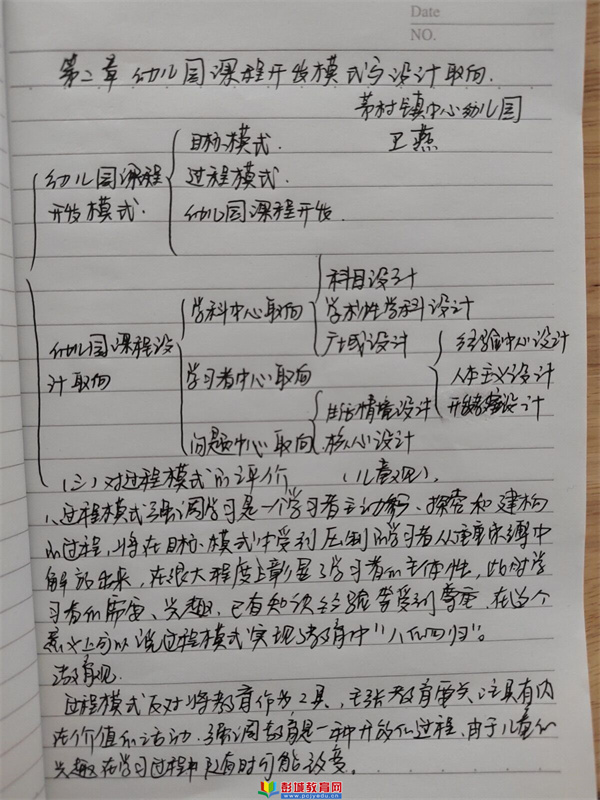 Date
NO.
第二章 幼儿园课程开发模式与设计取向.
茅村镇中心幼儿园
卫燕
目标模式.
幼儿园课程
过程模式.
开发模式.
幼儿园课程开发.
科目设计
学科中心取向
学术性学科设计
广域设计
幼儿园课程设
经验中心设计
计取向
学习者中心取向
人本主义设计
生活情境设计
开放教室设计
问题中心取向
核心设计
(三)对过程模式的评价 (儿童观).
1、过程模式强调学习是一个学习者主动参与、探究和建构
的过程,将在目标模式中受到压制的学习者从重重束缚中
解放出来,在很大程度上彰显了学习者的主体性,此时学
习者的需要、兴趣、已有知识经验等受到尊重.在这个
意义上可以说过程模式实现了教育中“人的回归”。
教育观.
过程模式反对将教育作为工具,主张教育要关注具有内
在价值的活动.强调教育是一种开放的过程.由于儿童的
兴趣在学习过程中随时可能改变。
彭城教育网
www.pcjyedu.cn